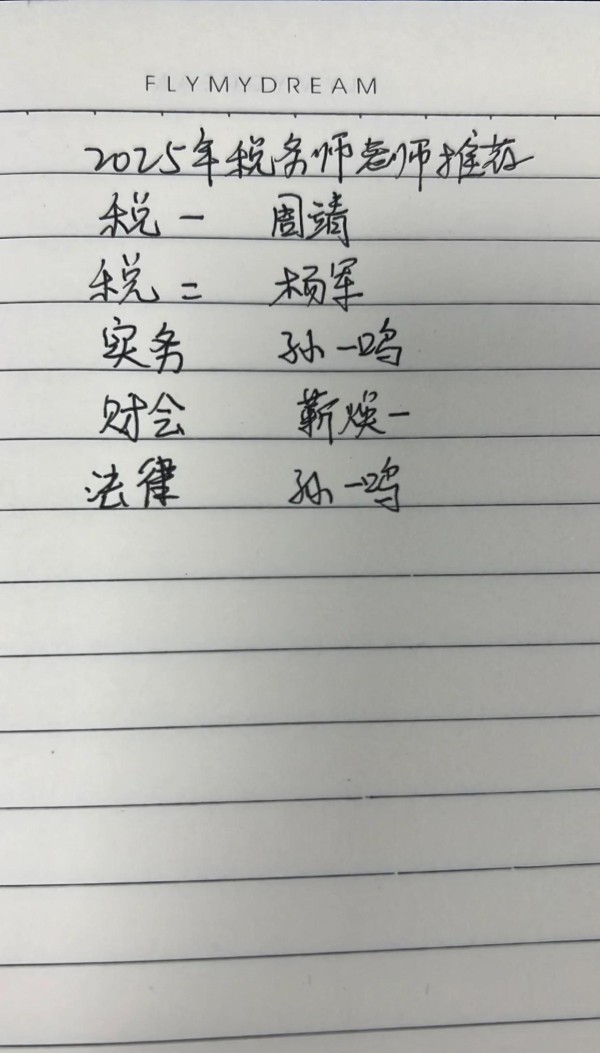 FLYMYDREAM
2025年税务师老师推荐
税一 周靖
税二 杨军
实务 孙一鸣
财会 靳焕一
法律 孙一鸣